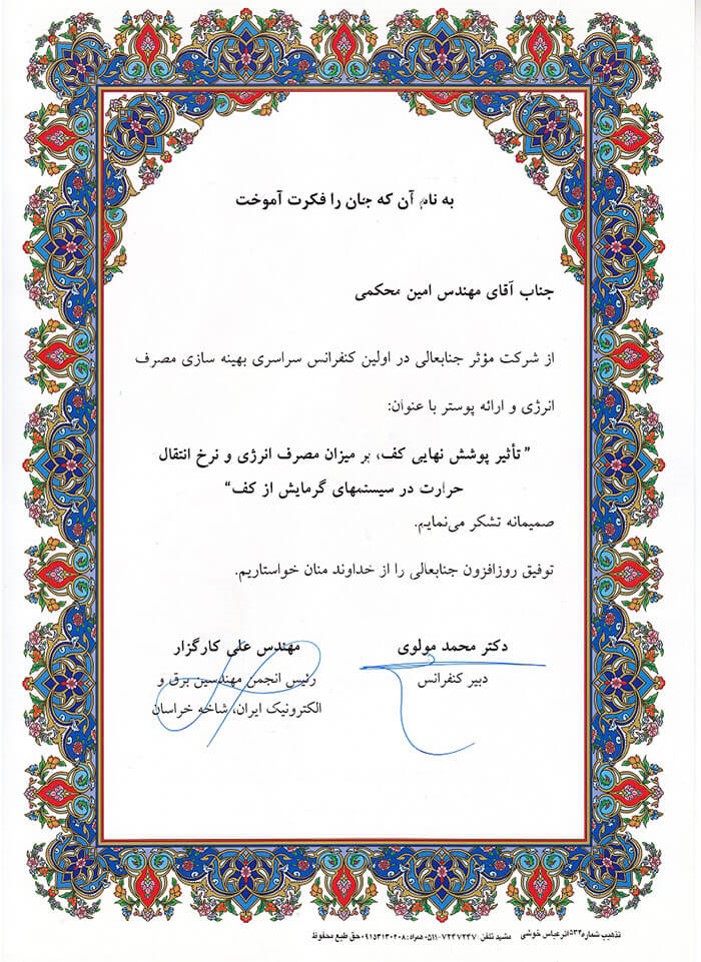 به نام آن که جان را فکرت آموخت
جناب آقای مهندس امین محکمی
از شرکت مؤثر جنابعالی در اولین کنفرانس سراسری بهینه سازی مصرف
انرژی و ارائه پوستر با عنوان:
" تأثیر پوشش نهایی کف، بر میزان مصرف انرژی و نرخ انتقال
حرارت در سیستمهای گرمایش از کف"
صمیمانه تشکر می‌نمایم.
توفیق روزافزون جنابعالی را از خداوند منان خواستاریم.
دکتر محمد مولوی
دبیر کنفرانس
مهندس علی کارگزار
رئیس انجمن مهندسین برق و
الکترونیک ایران، شاخه خراسان
تذهیب شماره ۵۳۲ اثر عباس خوشی مشهد تلفن ۷۲۴۷۲۴۷-۰۵۱۱ همراه: ۰۹۱۵۳۱۳۰۲۰۸ حق طبع محفوظ